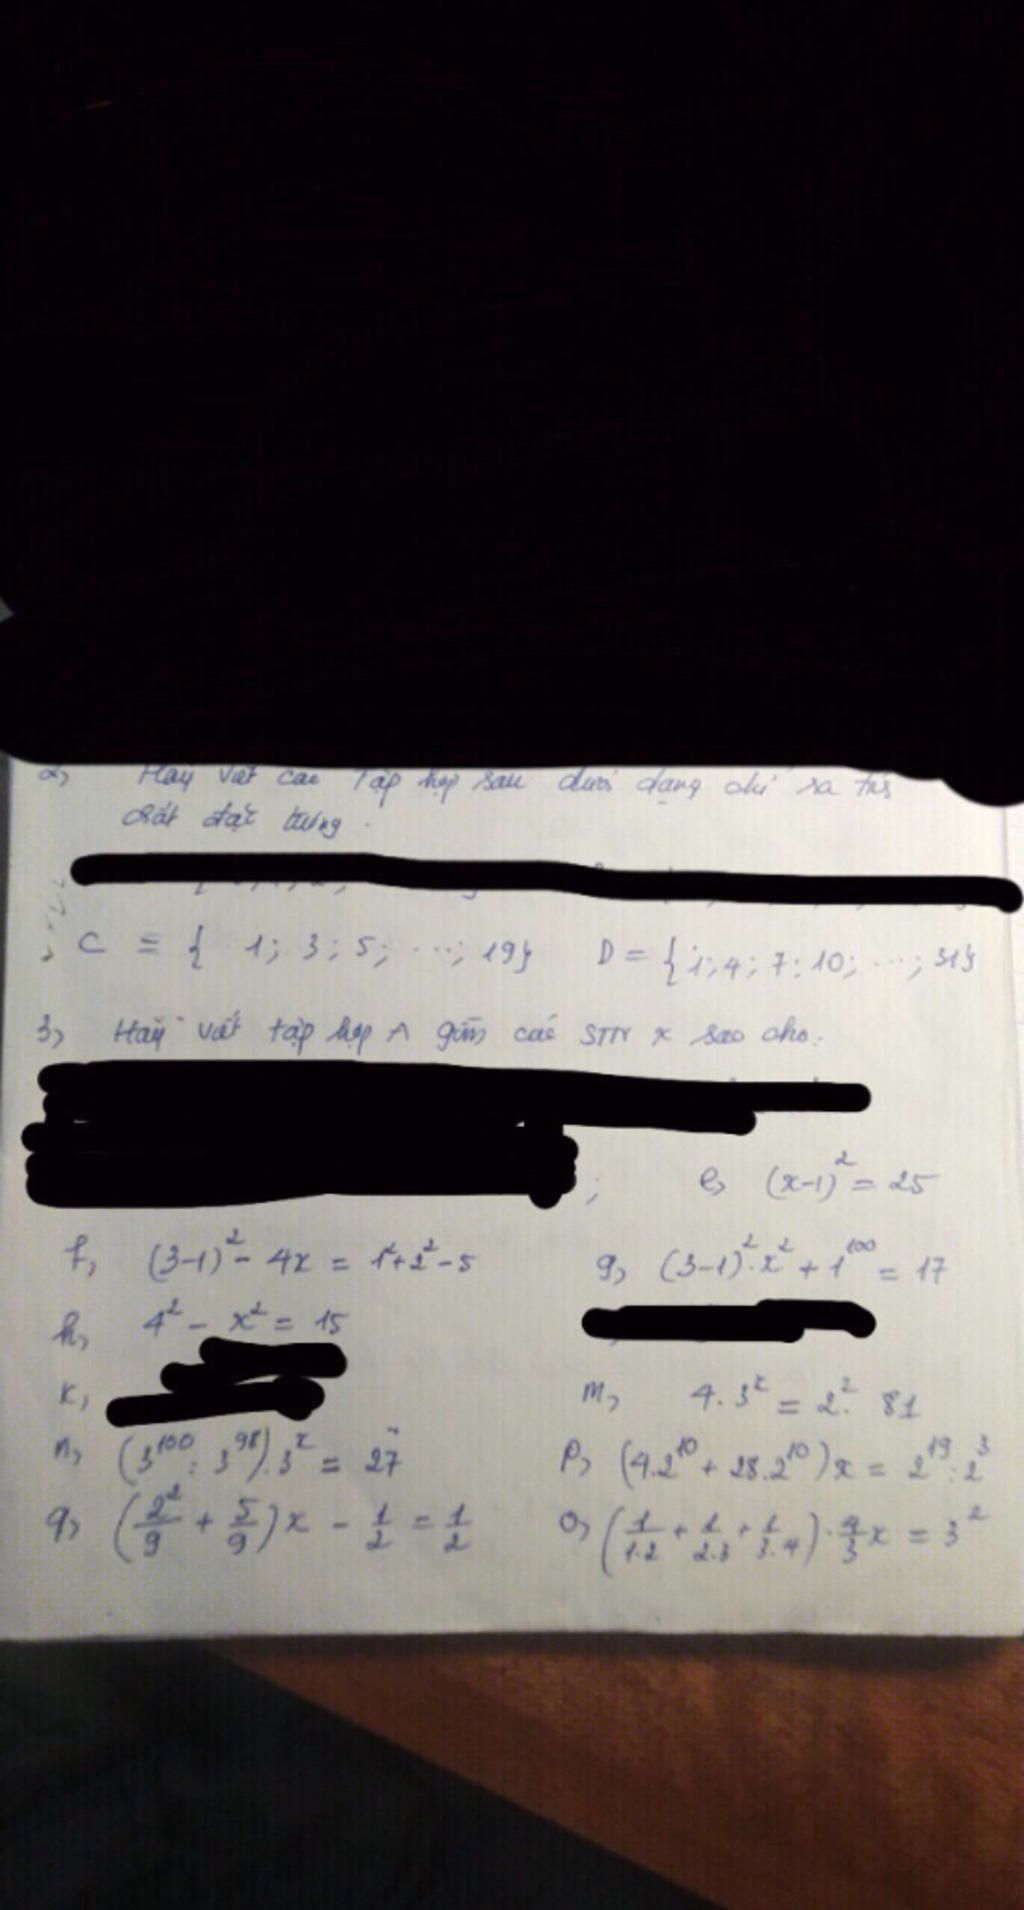 2) Hãy viết các tập hợp sau dưới dạng chỉ ra t/c
chất đặc trưng.
C = { 1; 3; 5; ...; 19} D = {1; 4; 7; 10; ...; 31}
3) Hãy viết tập hợp A gồm các STN x sao cho:
; e) (x-1)² = 25
f) (3-1)² - 4x = 1² + 2² - 5 g) (3-1)².x² + 1¹⁰⁰ = 17
h) 4² - x² = 15
k) m) 4.3ˣ = 2². 81
n) (3¹⁰⁰ : 3⁹⁸).3ˣ = 27 p) (4.2¹⁰ + 28.2¹⁰)x = 2¹⁹ : 2³
q) (2²/9 + 5/9)x - 1/2 = 1/2 o) (1/1.2 + 1/2.3 + 1/3.4).4/3x = 3²